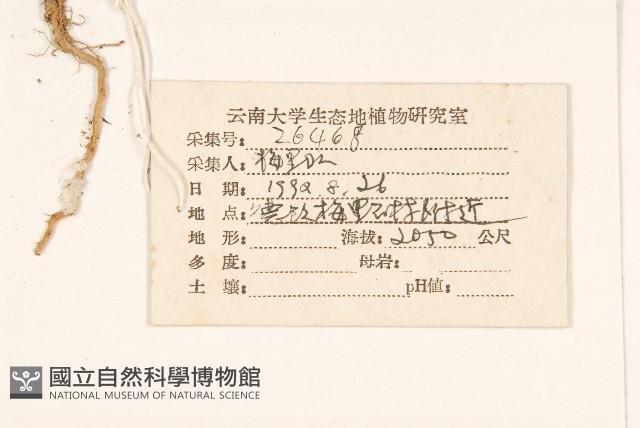 云南大学生态地植物研究室
采集号: 26468
采集人: 梅里
日 期: 1990.8.26
地 点: 梅里 村附近
地 形: 海拔: 2050 公尺
多 度: 母岩:
土 壤: pH値:
國立自然科學博物館
NATIONAL MUSEUM OF NATURAL SCIENCE